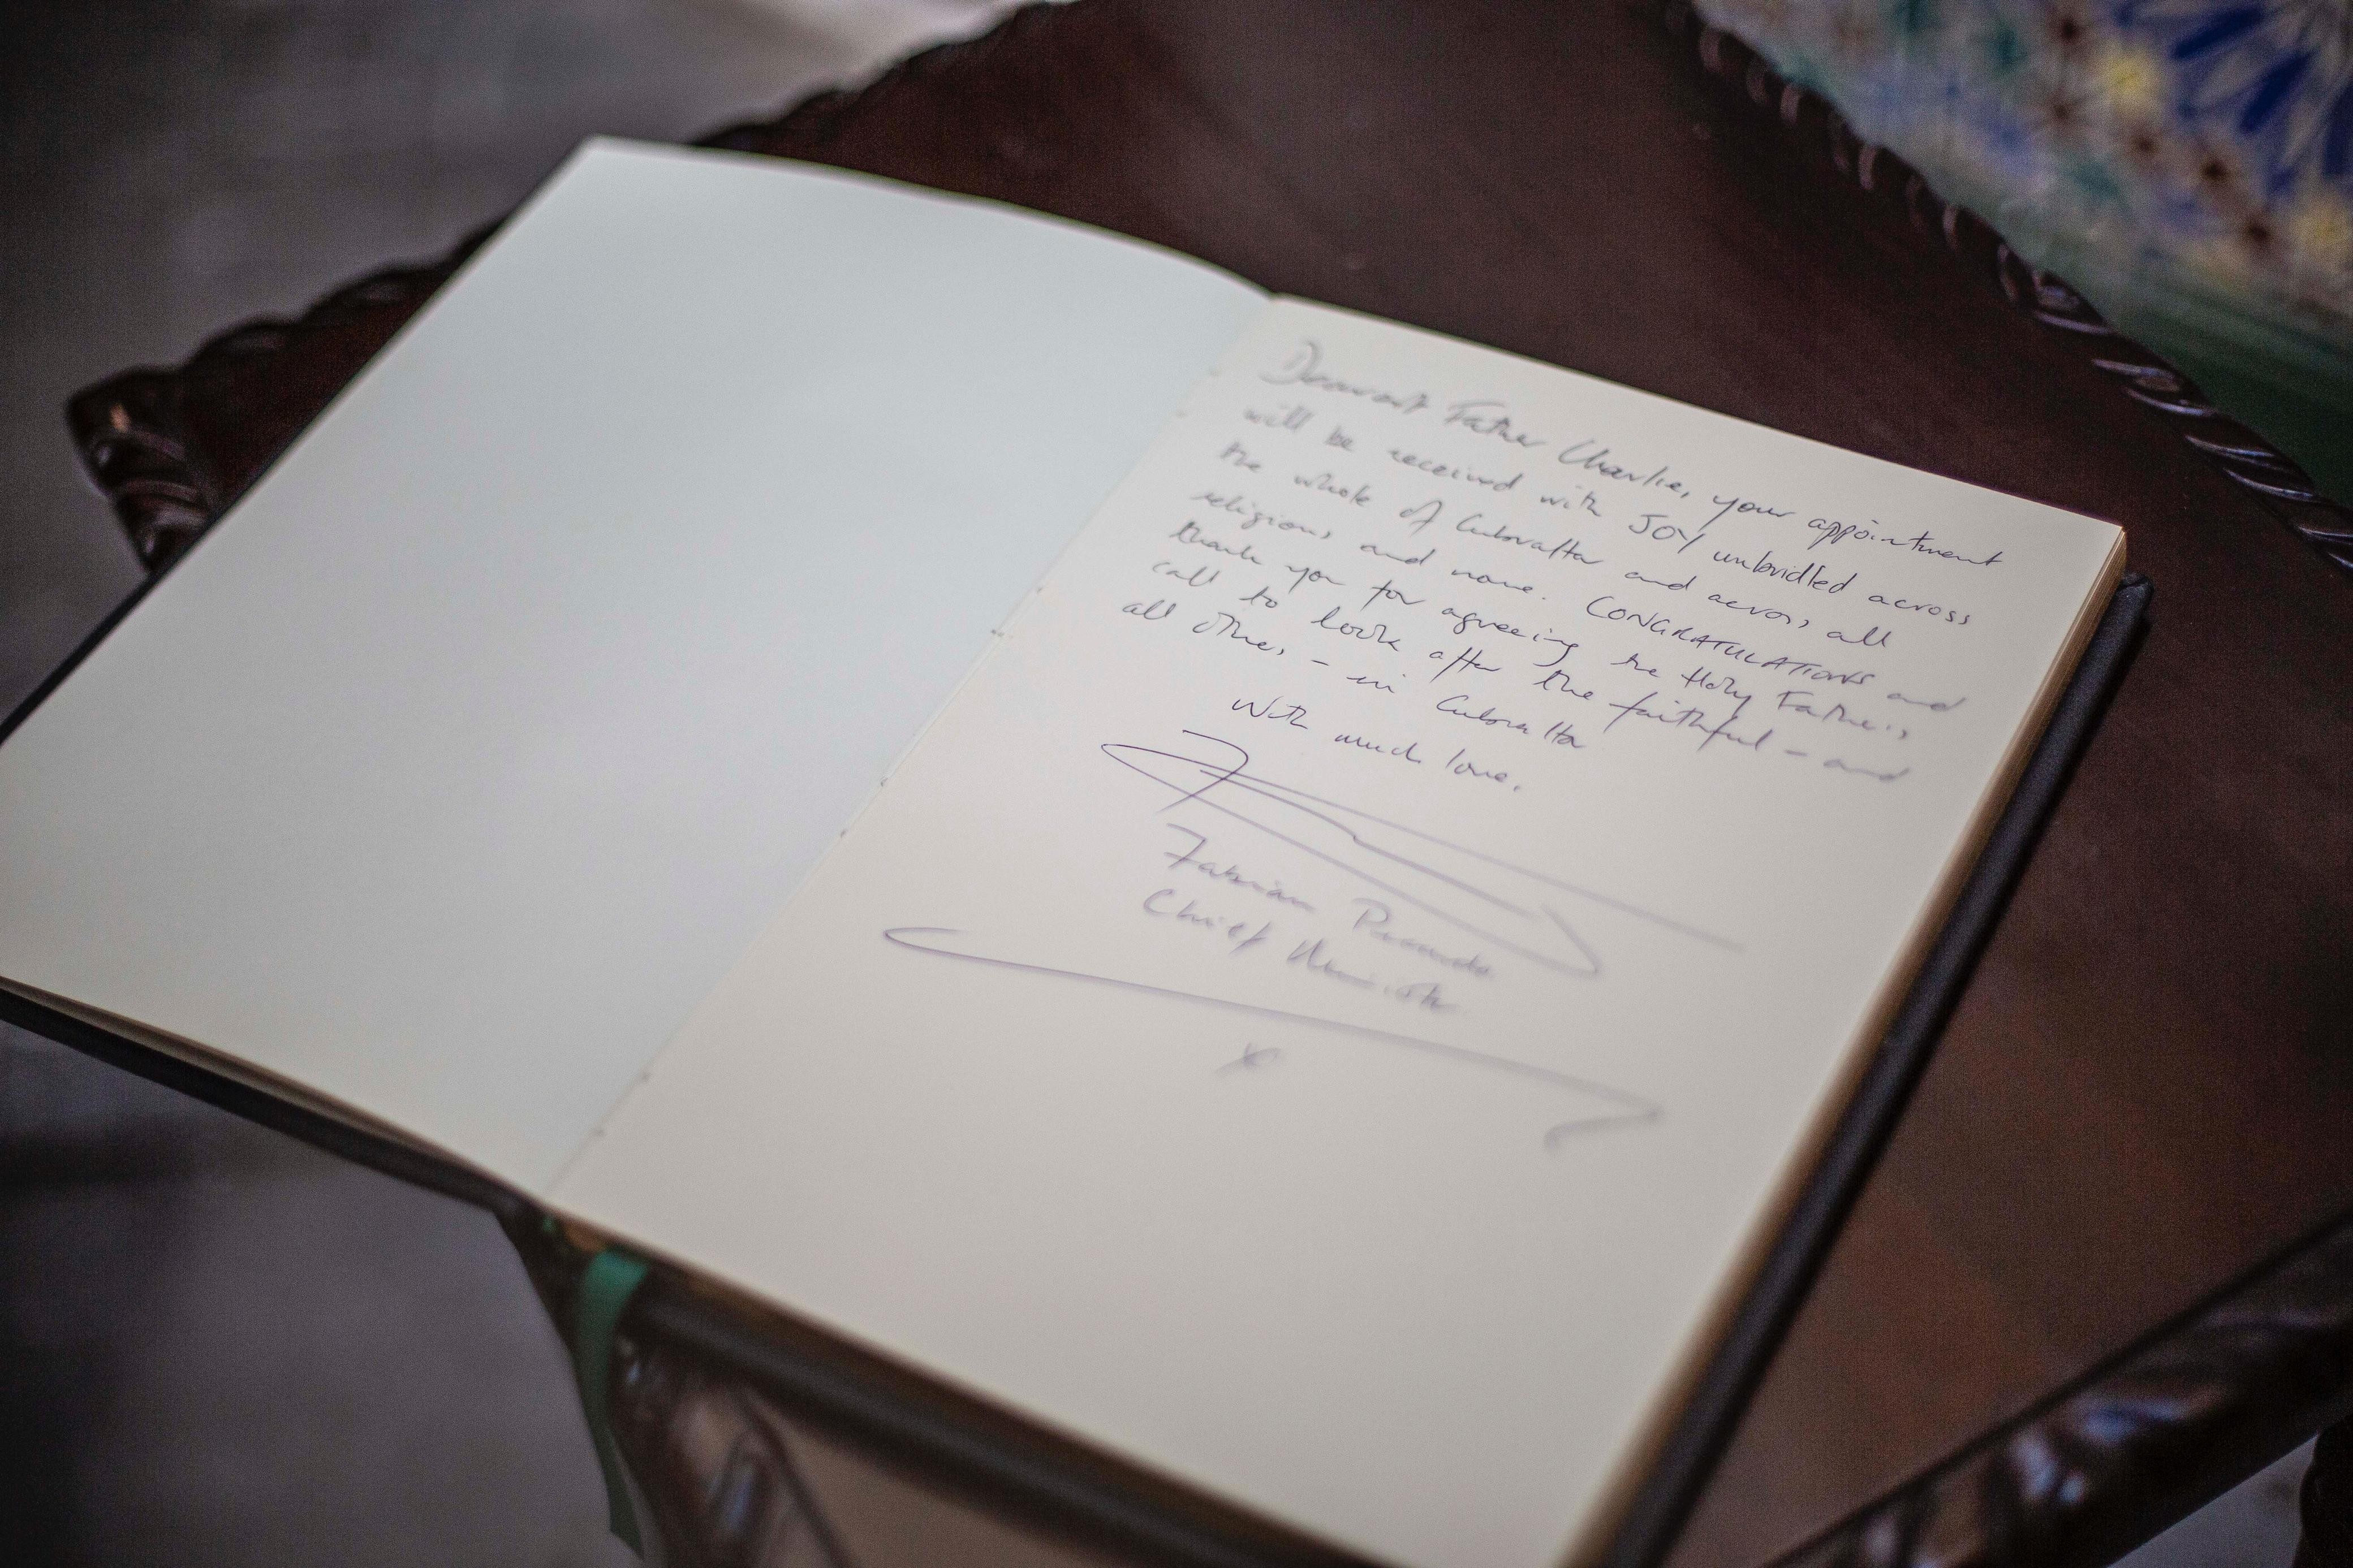 Dearest Father Charlie, your appointment
will be received with JOY unbridled across
the whole of Gibraltar and across all
religions and none. CONGRATULATIONS and
thank you for agreeing the Holy Father's
call to look after the faithful - and
all others - in Gibraltar
With much love.
Fabian Picardo
Chief Minister
x